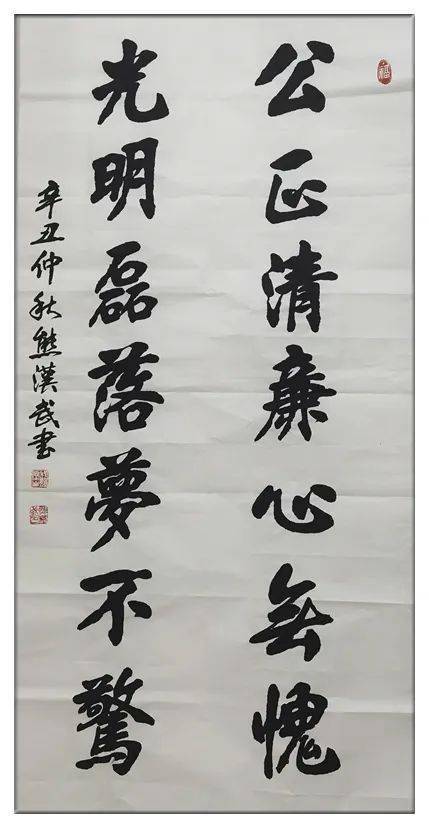 公正清廉心無愧
光明磊落夢不驚
辛丑仲秋熊漢武書
福